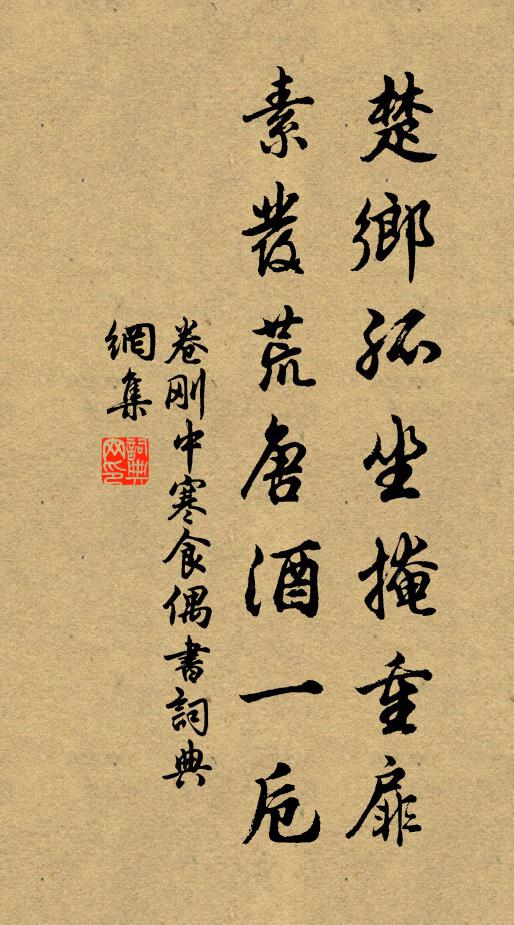 楚鄉孤坐掩重扉
素發荒唐酒一卮
卷剛中寒食偶書詞典
網集
詞典網印